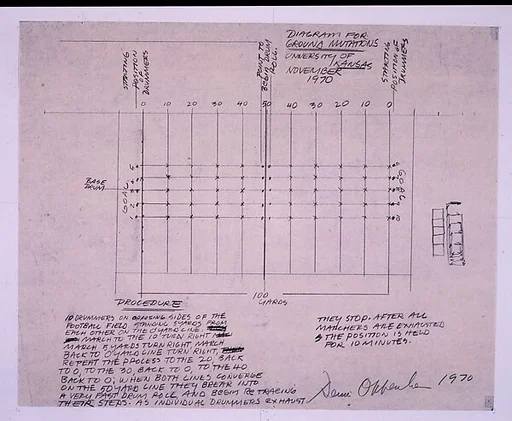 DIAGRAM FOR
GROUND MUTATIONS
UNIVERSITY OF
KANSAS
NOVEMBER
1970
STARTING
POSITION
OF
DRUMMERS
POINT TO
BEGIN DRUM
ROLL.
STARTING
POSITION OF
DRUMMERS
0 10 20 30 40 50 40 30 20 10 0
BASE
DRUM
GOAL
5
4
3
2
1
GOAL
100
YARDS
PROCEDURE
10 DRUMMERS ON OPPOSING SIDES OF THE
FOOTBALL FIELD, STANDING 5 YARDS FROM
EACH OTHER ON THE 0 YARD LINE.
MARCH TO THE 10 TURN RIGHT
MARCH 5 YARDS TURN RIGHT, MARCH
BACK TO 0 YARD LINE TURN RIGHT,
REPEAT THE PROCESS TO THE 20, BACK
TO 0, TO THE 30, BACK TO 0, TO THE 40
BACK TO 0, WHEN BOTH LINES CONVERGE
ON THE 50 YARD LINE THEY BREAK INTO
A VERY FAST DRUM ROLL AND BEGIN RETRACING
THEIR STEPS. AS INDIVIDUAL DRUMMERS EXHAUST
THEY STOP. AFTER ALL
MARCHERS ARE EXHAUSTED
THE POSITION IS HELD
FOR 10 MINUTES.
Dennis Oppenheim 1970